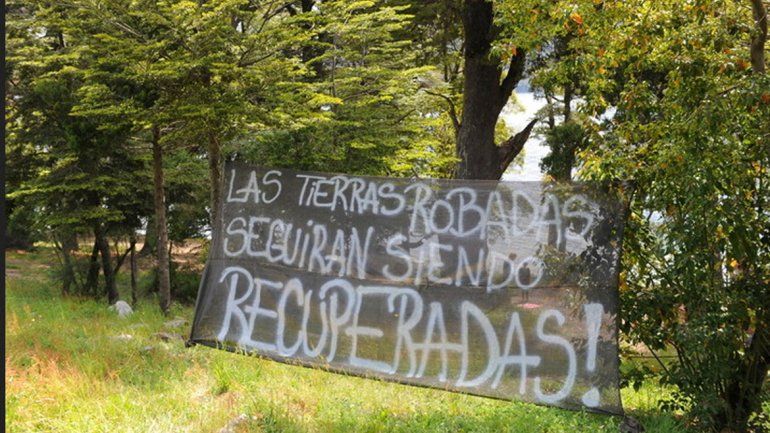 LAS TIERRAS ROBADAS
SEGUIRAN SIENDO
RECUPERADAS!